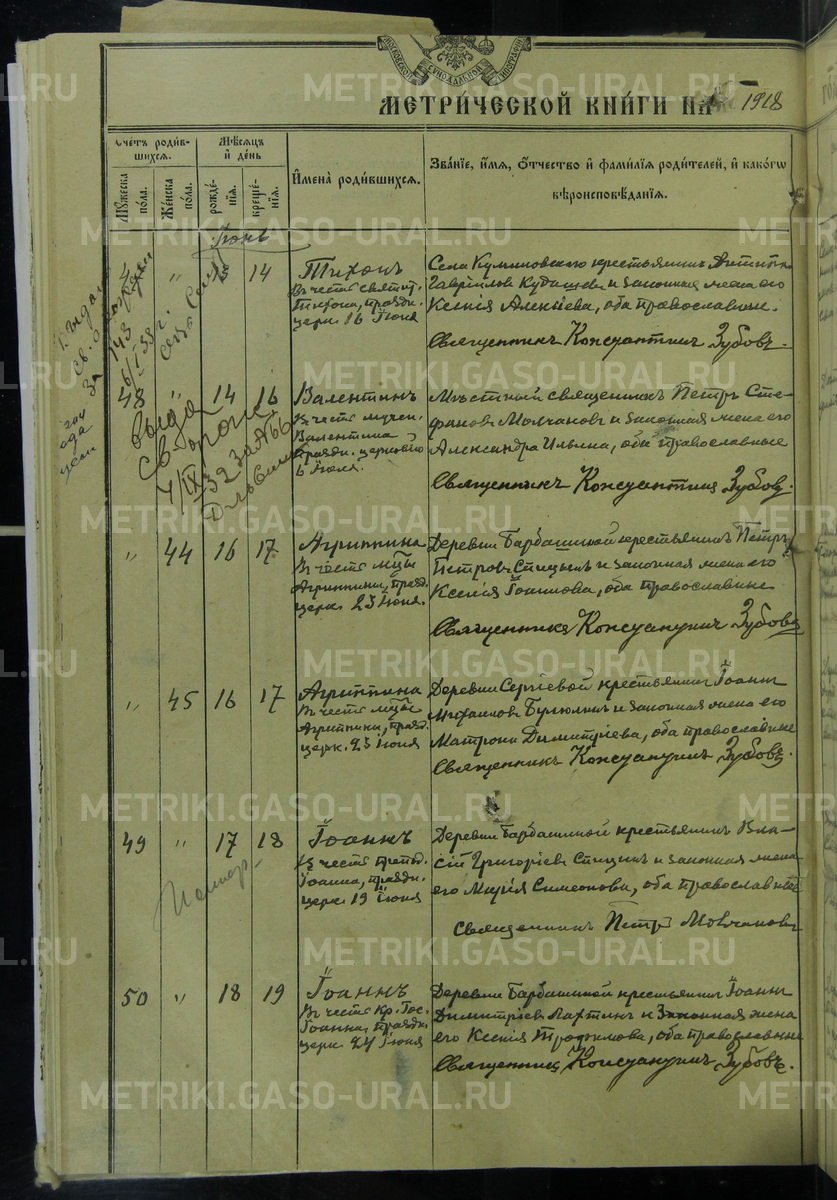 МОСКОВСКОЙ СУНОДАЛЬНОЙ ТИПОГРАФІИ
МЕТРИ́ЧЕСКОЙ КНИ́ГИ НА 1918
Счетъ роди́в-
шихся.
Мѣсяцъ
и҆ день
И҆мена̀ роди́вшихся.
Зва́нїе, и҆́мя, ѻ҆́тчество и҆ фами́лїя роди́телей, и҆ како́гѡ
вѣроисповѣ́данїя.
Мꙋ́жеска по́ла.
Же́нска по́ла.
рожде́нїя.
креще́нїя.
Іюнь
" 14 Тихонъ
Въ честь святит.
Тихона, праздн.
церк. 16 Іюня
Села крестьянинъ
Гавріиловъ и законная жена его
Ксенія Алексіева, оба православные.
Священникъ Константинъ Зубовъ.
48 " 14 16 Валентинъ
Въ честь мучен.
Валентина
праздн. церковію
Іюня.
Мѣстный священникъ Петръ Сте-
фановъ Молчановъ и законная жена его
Александра Ильина, оба православные
Священникъ Константинъ Зубовъ.
" 44 16 17 Агриппина
Въ честь мцы
Агриппины, празд.
церк. 23 Іюня.
Деревни Барбашиной крестьянинъ Петръ
Петровъ Спицынъ и законная жена его
Ксенія Іоаннова, оба православные
Священникъ Константинъ Зубовъ
" 45 16 17 Агриппина
Въ честь мцы
Агриппины, празд.
церк. 23 Іюня
Деревни Сергіевой крестьянинъ Іоаннъ
Михаиловъ и законная жена его
Матрона Димитріева, оба православные
Священникъ Константинъ Зубовъ.
49 " 17 18 Іоаннъ
Въ честь препод.
Іоанна, праздн.
церк. 19 Іюня
Деревни Барбашиной крестьянинъ Вла-
сій Григоріевъ Спицинъ и законная жена
его Марія Симеонова, оба православные
Священникъ Петръ Молчановъ
50 " 18 19 Іоаннъ
Въ честь Кр. Гос.
Іоанна, праздн.
церк. 24 Іюня
Деревни Барбашиной крестьянинъ Іоаннъ
Димитріевъ Лахтинъ и законная жена
его Ксенія Трофимова, оба православные
Священникъ Константинъ Зубовъ.
METRIKI.GASO-URAL.RU